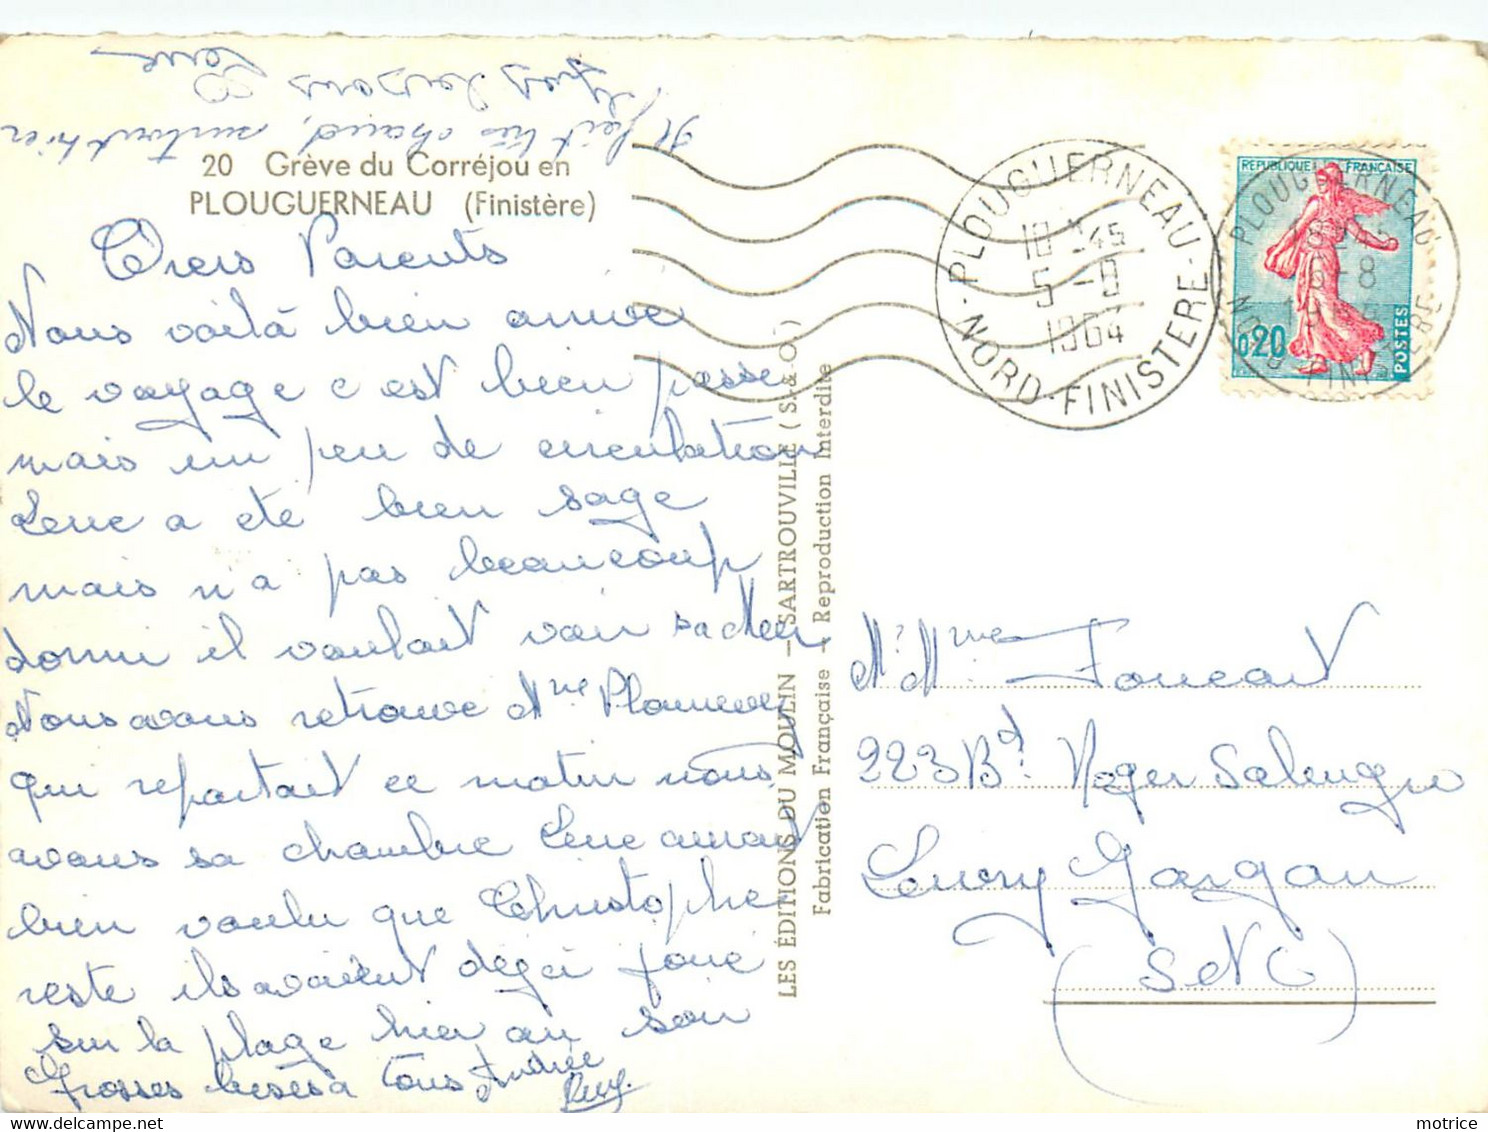 Il fait très chaud, surtout hier
Gros baisers
20 Grève du Corréjou en
PLOUGUERNEAU (Finistère)
Chers Parents
Nous voilà bien arrivé
le voyage c est bien passé
mais un peu de circulation
a été bien sage
mais n'a pas beaucoup
dormi il voulait voir sa Mer.
Nous avons retrouvé Mme
qui repartait ce matin nous
avons sa chambre aurait
bien voulu que Christophe
reste ils avaient déjà joué
sur la plage hier au soir
Grosses bises à tous Andrée
LES ÉDITIONS DU MOULIN – SARTROUVILLE (S.-&-O.)
Fabrication Française – Reproduction Interdite
PLOUGUERNEAU
NORD-FINISTERE
18H45
5-8
1964
REPUBLIQUE FRANÇAISE
0,20
POSTES
PLOUGUERNEAU
NORD FINISTERE
M. Mme Foucart
223 Bd Roger Salengro
Livry Gargan
(S et O)
motrice